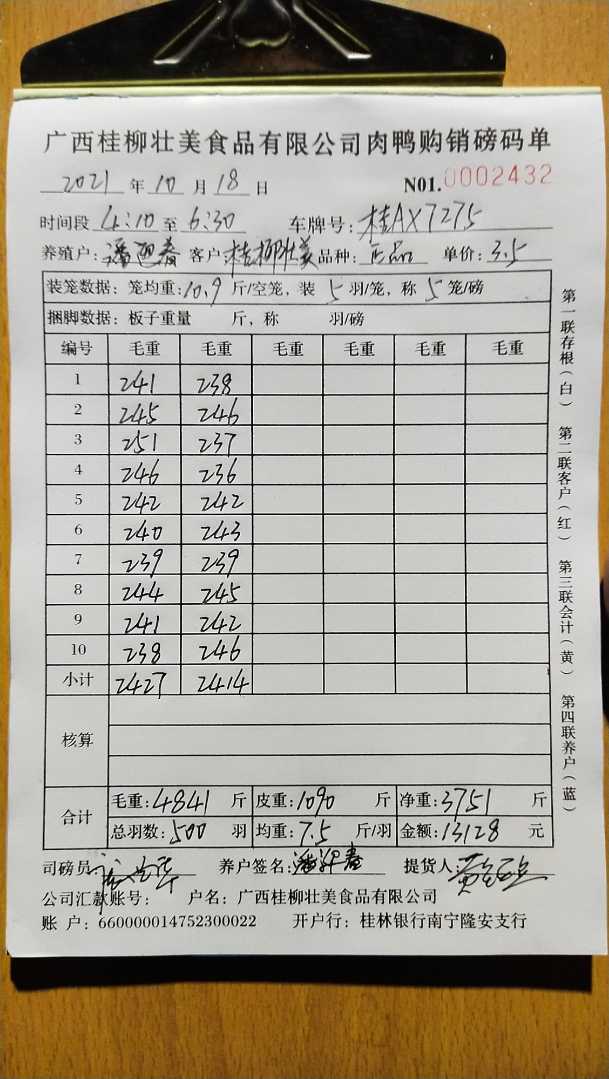 广西桂柳壮美食品有限公司肉鸭购销磅码单
2021 年 10 月 18 日 N01.0002432
时间段 4:10 至 6:30 车牌号: 桂AX7275
养殖户: 潘迎春 客户: 桂柳壮美 品种: 正品 单价: 3.5
装笼数据: 笼均重: 10.9 斤/空笼, 装 5 羽/笼, 称 5 笼/磅
捆脚数据: 板子重量 斤, 称 羽/磅
编号 毛重 毛重 毛重 毛重 毛重 毛重
1 241 238
2 245 246
3 251 237
4 246 236
5 242 242
6 240 243
7 239 239
8 244 245
9 241 242
10 238 246
小计 2427 2414
核算
合计
毛重: 4841 斤 皮重: 1090 斤 净重: 3751 斤
总羽数: 500 羽 均重: 7.5 斤/羽 金额: 13128 元
司磅员: 养户签名: 潘迎春 提货人:
公司汇款账号: 户名: 广西桂柳壮美食品有限公司
账户: 660000014752300022 开户行: 桂林银行南宁隆安支行
第一联存根(白) 第二联客户(红) 第三联会计(黄) 第四联养户(蓝)